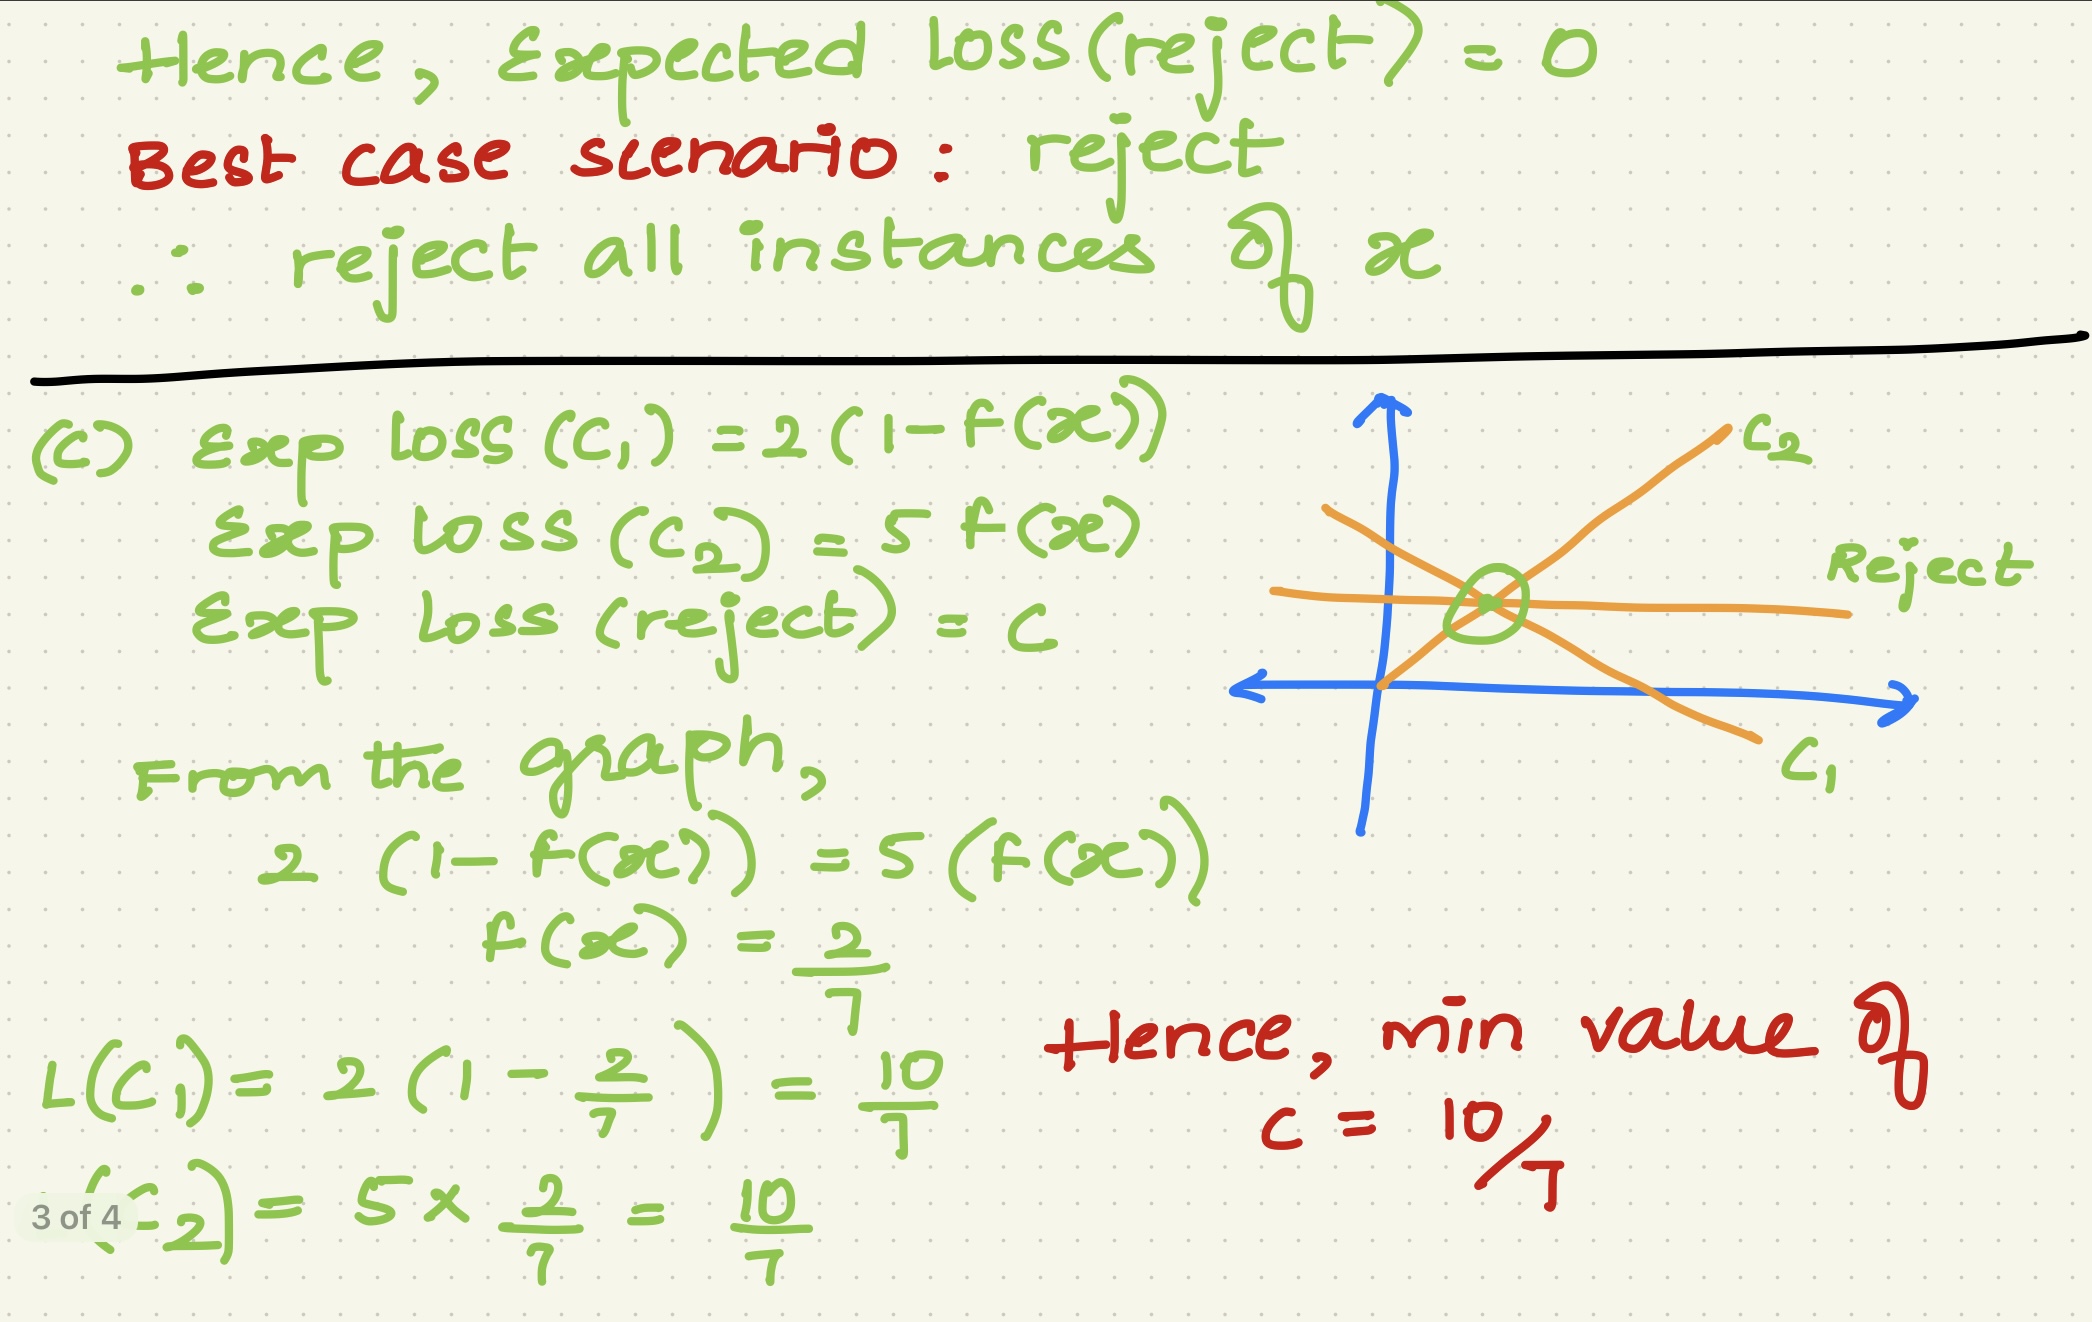 Hence, Expected loss(reject) = 0
Best case scenario: reject
∴ reject all instances of x
(C) Exp loss (C₁) = 2(1-f(x))
Exp loss (C₂) = 5 f(x)
Exp loss (reject) = C
C₂
Reject
C₁
From the graph,
2 (1-f(x)) = 5(f(x))
f(x) = 2/7
L(C₁) = 2 (1 - 2/7) = 10/7
(C₂) = 5 × 2/7 = 10/7
Hence, min value of
C = 10/7
3 of 4